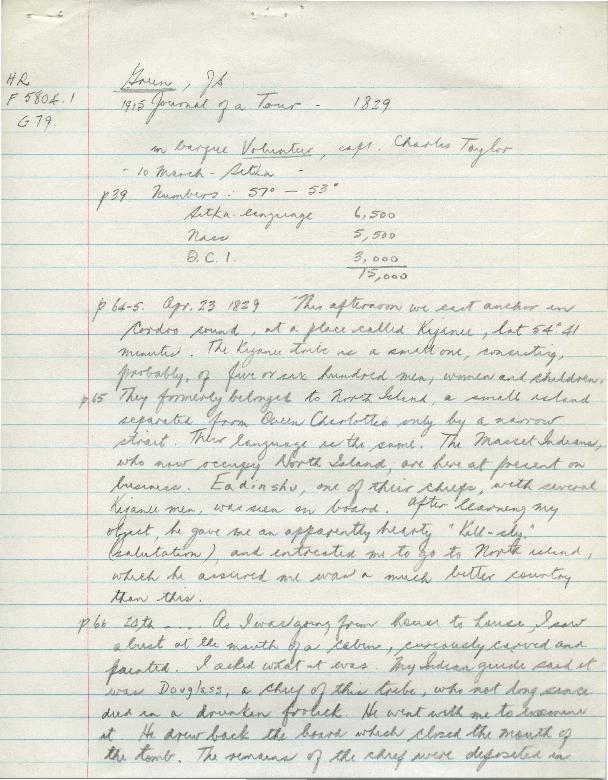 HR
F 5804.1
G 79
Green, JS
1915 Journal of a Tour - 1829
in barque Volunteer, capt. Charles Taylor
- 10 March - Sitka -
p39 Numbers: 57° - 53°
Sitka language 6,500
Nass 5,500
Q.C.I. 3,000
15,000
p 64-5. Apr. 23 1829 "This afternoon we cast anchor in
Cordoo sound, at a place called Kiganee, lat 54° 41
minutes. The Kiganee tribe is a small one, consisting,
probably, of five or six hundred men, women and children.
p.65 They formerly belonged to North Island, a small island
separated from Queen Charlotte's only by a narrow
strait. Their language is the same. The Masset Indians,
who now occupy North Island, are here at present on
business. Eadinshu, one of their chiefs, with several
Kiganee men, was seen on board. After learning my
object, he gave me an apparently hearty "Kill-sly"
(salutation), and entreated me to go to North island,
which he assured me was a much better country
than this.
p.66 24th .... As I was going from house to house, I saw
a bust at the mouth of a cabin, curiously carved and
painted. I asked what it was. My Indian guide said it
was Douglass, a chief of this tribe, who not long since
died in a drunken frolick. He went with me to examine
it. He drew back the board which closed the mouth of
the tomb. The remains of the chief were deposited in